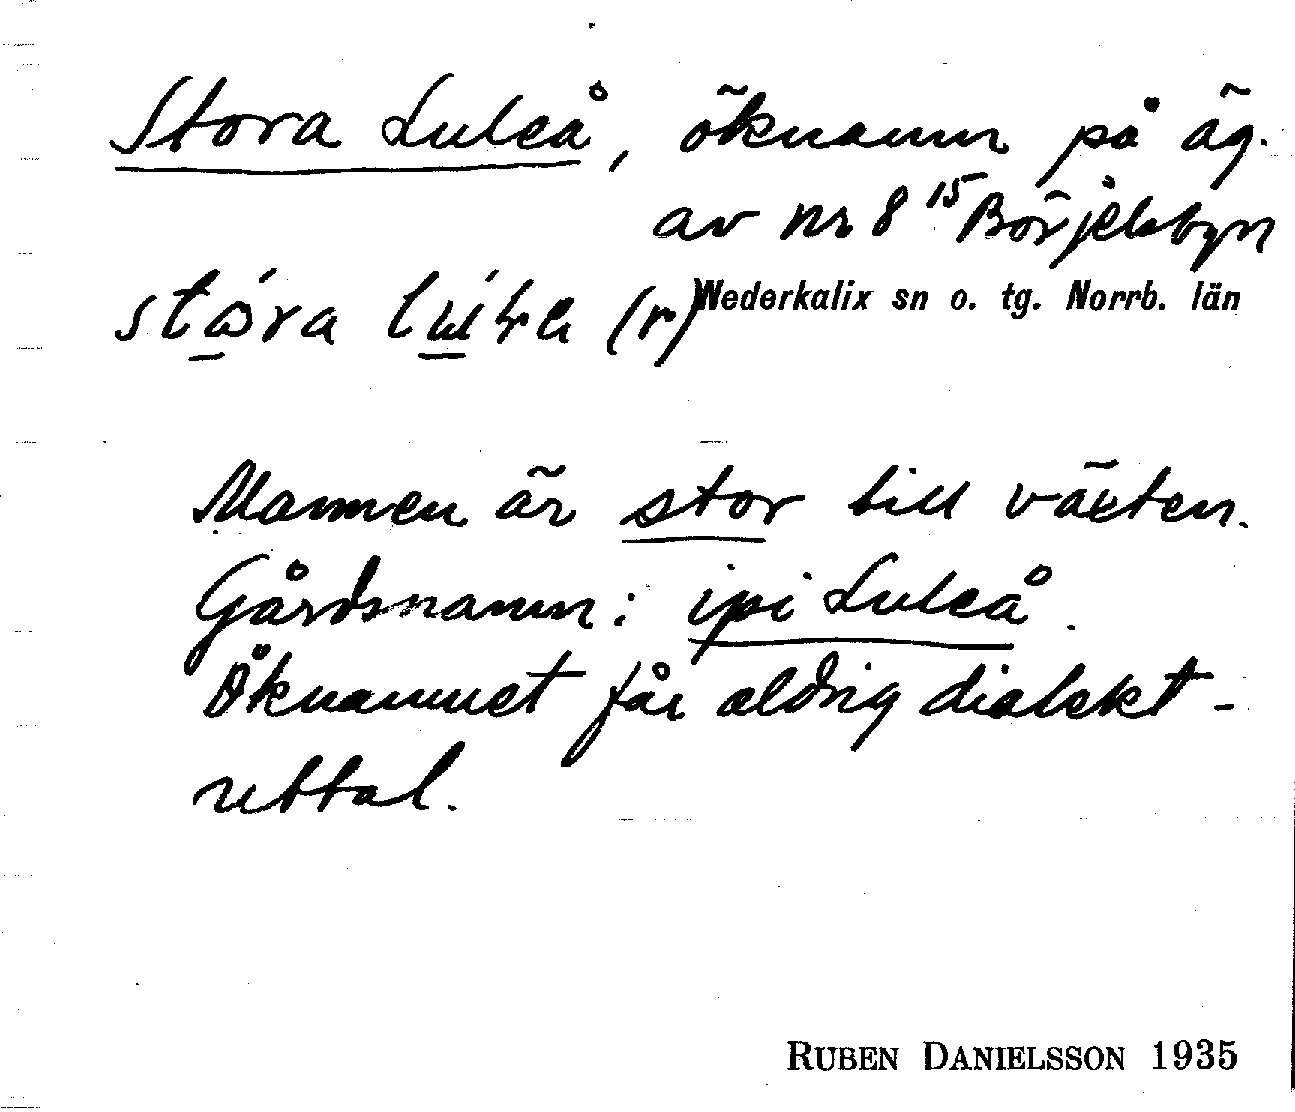 Stora Luleå, öknamn på äg.
av nr 8 15 Börjelsbyn
Nederkalix sn o. tg. Norrb. län
(r)
Mannen är stor till växten.
Gårdsnamn: ipi Luleå.
Öknamnet får aldrig dialekt-
uttal.
RUBEN DANIELSSON 1935